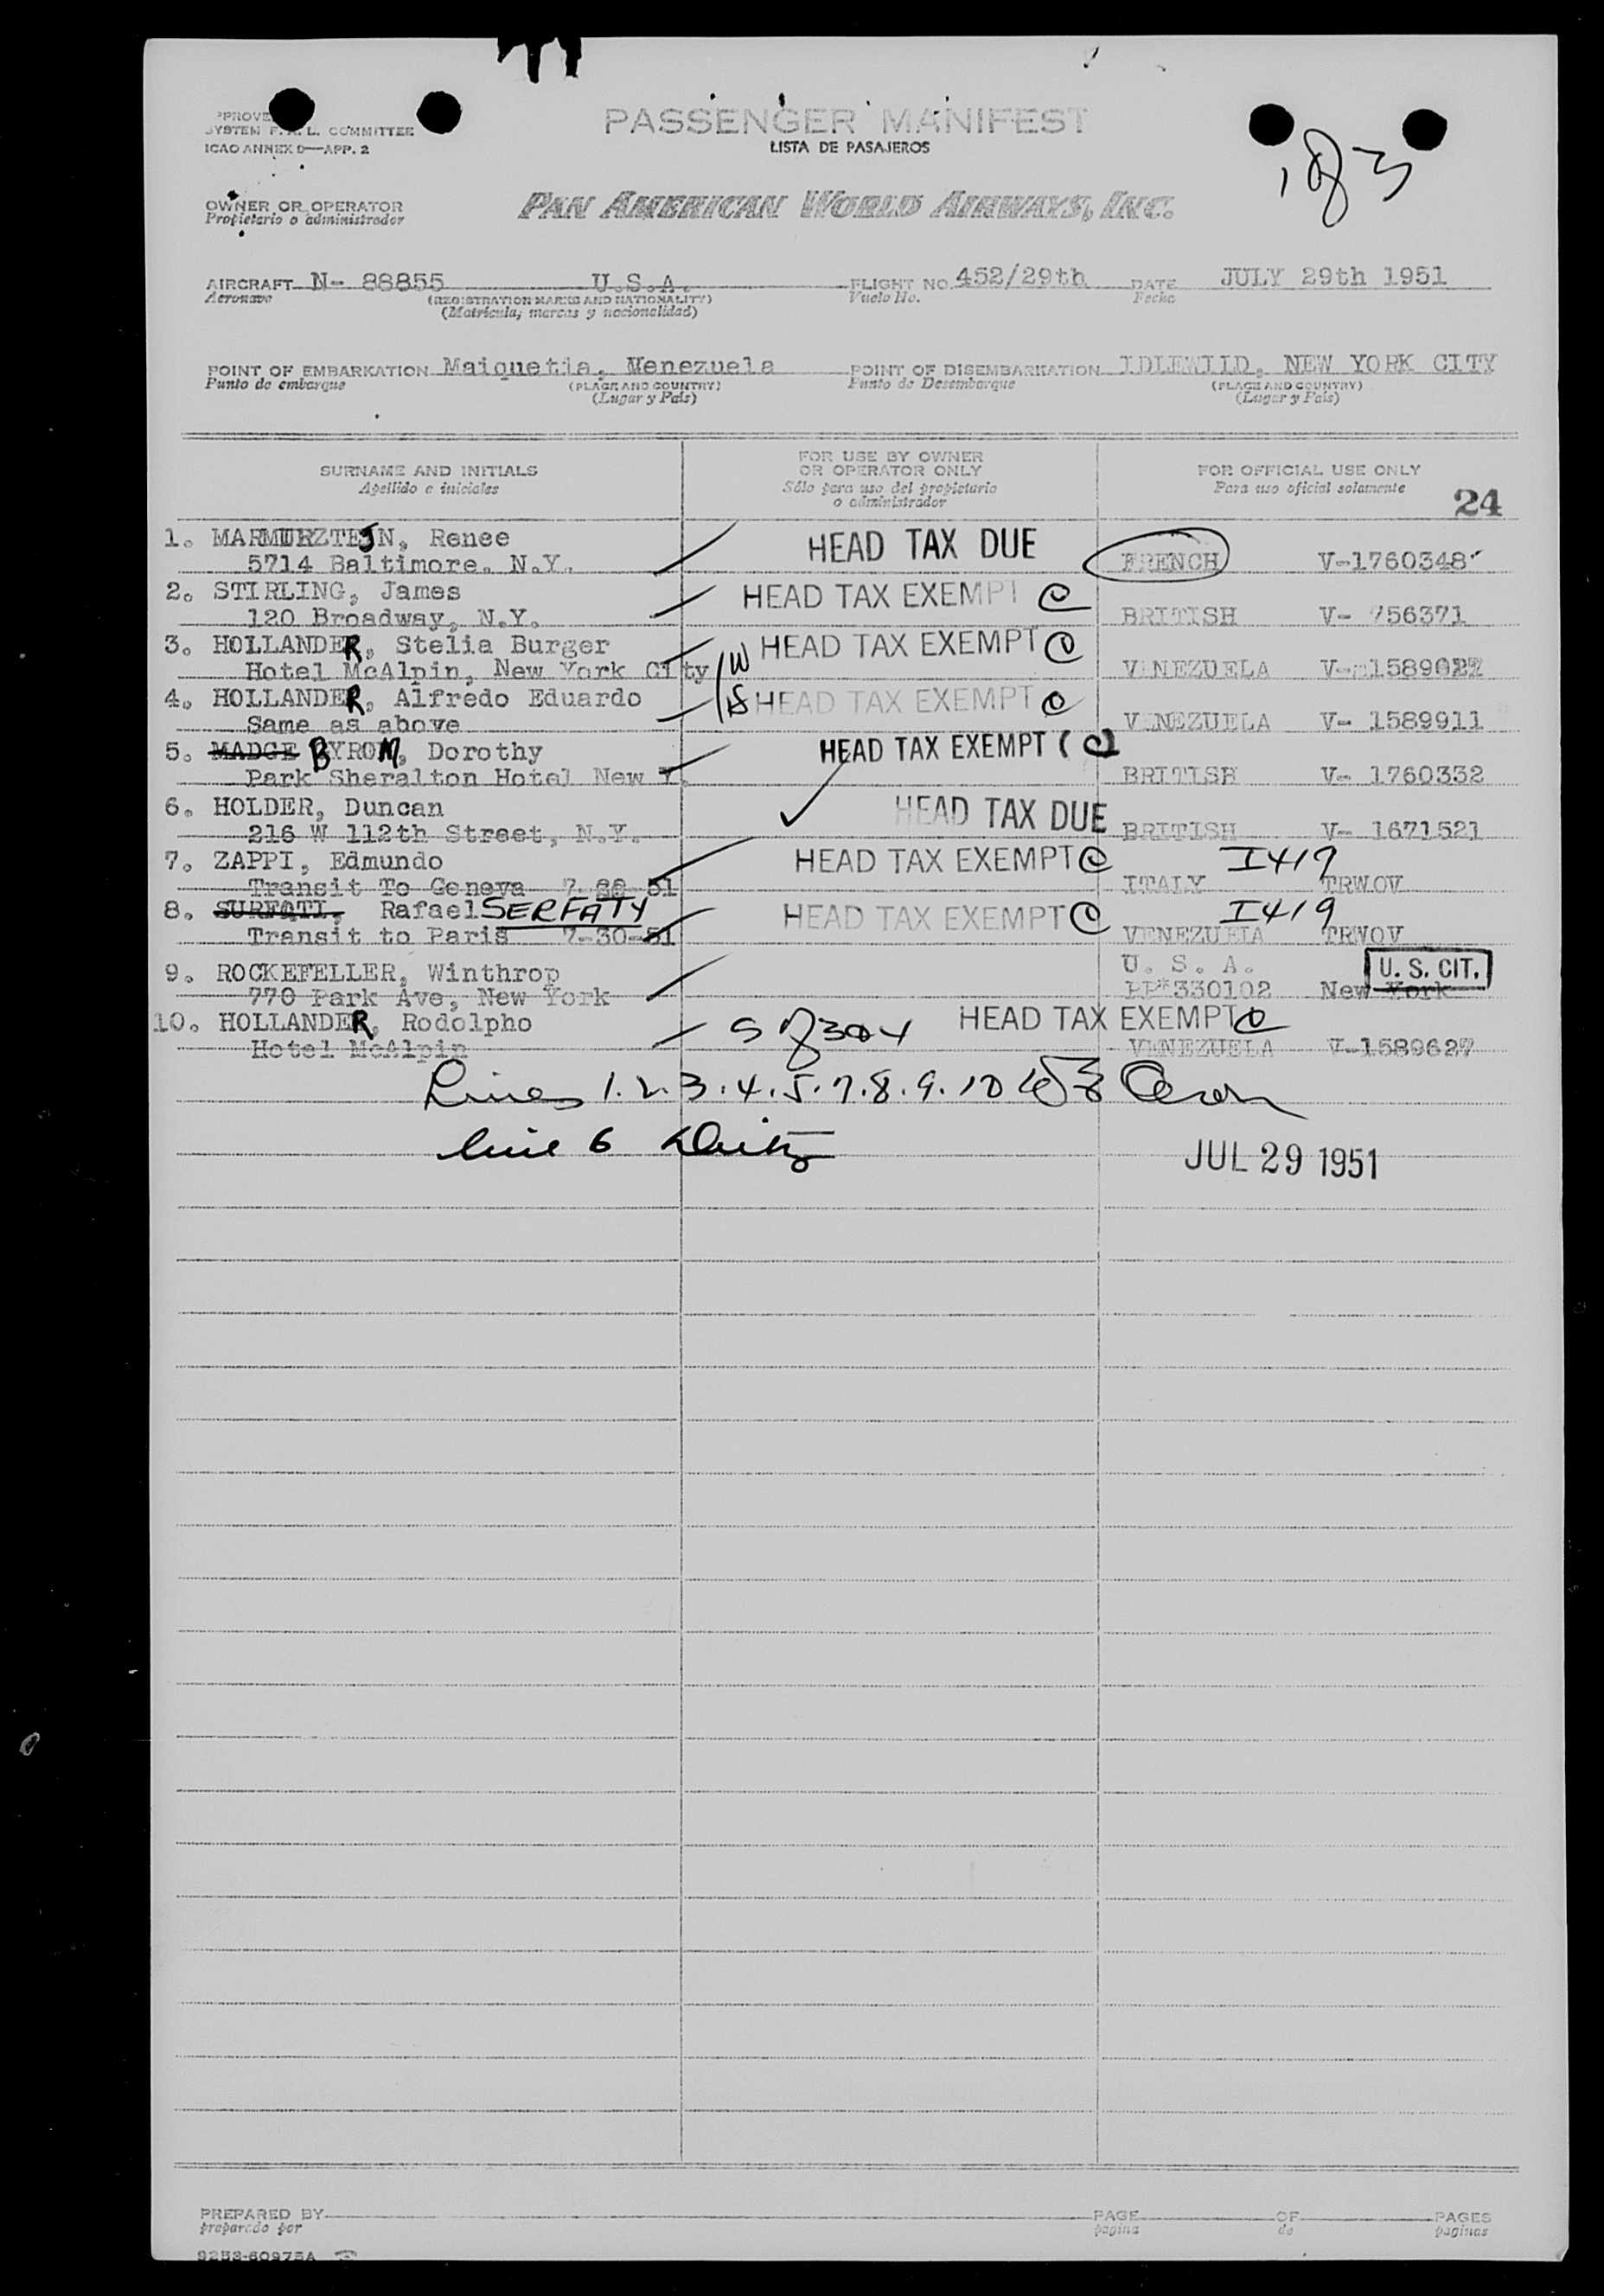 PPROVE
SYSTEM F. A. L. COMMITTEE
ICAO ANNEX 9—APP. 2
PASSENGER MANIFEST
LISTA DE PASAJEROS
1 of 3
OWNER OR OPERATOR
Propietario o administrador
PAN AMERICAN WORLD AIRWAYS, INC.
AIRCRAFT N- 88855 U.S.A. FLIGHT NO. 452/29th DATE JULY 29th 1951
Aeronave (REGISTRATION MARKS AND NATIONALITY) Vuelo No. Fecha
(Matrícula, marcas y nacionalidad)
POINT OF EMBARKATION Maiquetia, Venezuela POINT OF DISEMBARKATION IDLEWILD, NEW YORK CITY
Punto de embarque (PLACE AND COUNTRY) Punto de Desembarque (PLACE AND COUNTRY)
(Lugar y País) (Lugar y País)
SURNAME AND INITIALS FOR USE BY OWNER OR OPERATOR ONLY FOR OFFICIAL USE ONLY
Apellido e iniciales Sólo para uso del propietario o administrador Para uso oficial solamente 24
1. MARMURZTEJN, Renee HEAD TAX DUE
5714 Baltimore. N.Y. FRENCH V-1760348
2. STIRLING, James HEAD TAX EXEMPT C
120 Broadway, N.Y. BRITISH V- 756371
3. HOLLANDER, Stelia Burger W HEAD TAX EXEMPT C
Hotel McAlpin, New York City VENEZUELA V- 1589627
4. HOLLANDER, Alfredo Eduardo S HEAD TAX EXEMPT C
Same as above VENEZUELA V- 1589911
5. MADGE BYROM, Dorothy HEAD TAX EXEMPT C
Park Sheralton Hotel New Y. BRITISH V- 1760332
6. HOLDER, Duncan HEAD TAX DUE
216 W 112th Street, N.Y. BRITISH V- 1671521
7. ZAPPI, Edmundo HEAD TAX EXEMPT C I419
Transit To Geneva 7-29-51 ITALY TRWOV
8. SURFATI, Rafael SERFATY HEAD TAX EXEMPT C I419
Transit to Paris 7-30-51 VENEZUELA TRWOV
9. ROCKEFELLER, Winthrop U. S. A. U. S. CIT.
770 Park Ave, New York PP*330102 New York
10. HOLLANDER, Rodolpho S of 3&4 HEAD TAX EXEMPT C
Hotel McAlpin VENEZUELA V-1589627
Lines 1.2.3.4.5.7.8.9.10
line 6
JUL 29 1951
PREPARED BY PAGE OF PAGES
preparado por pagina de paginas
9253-60975A